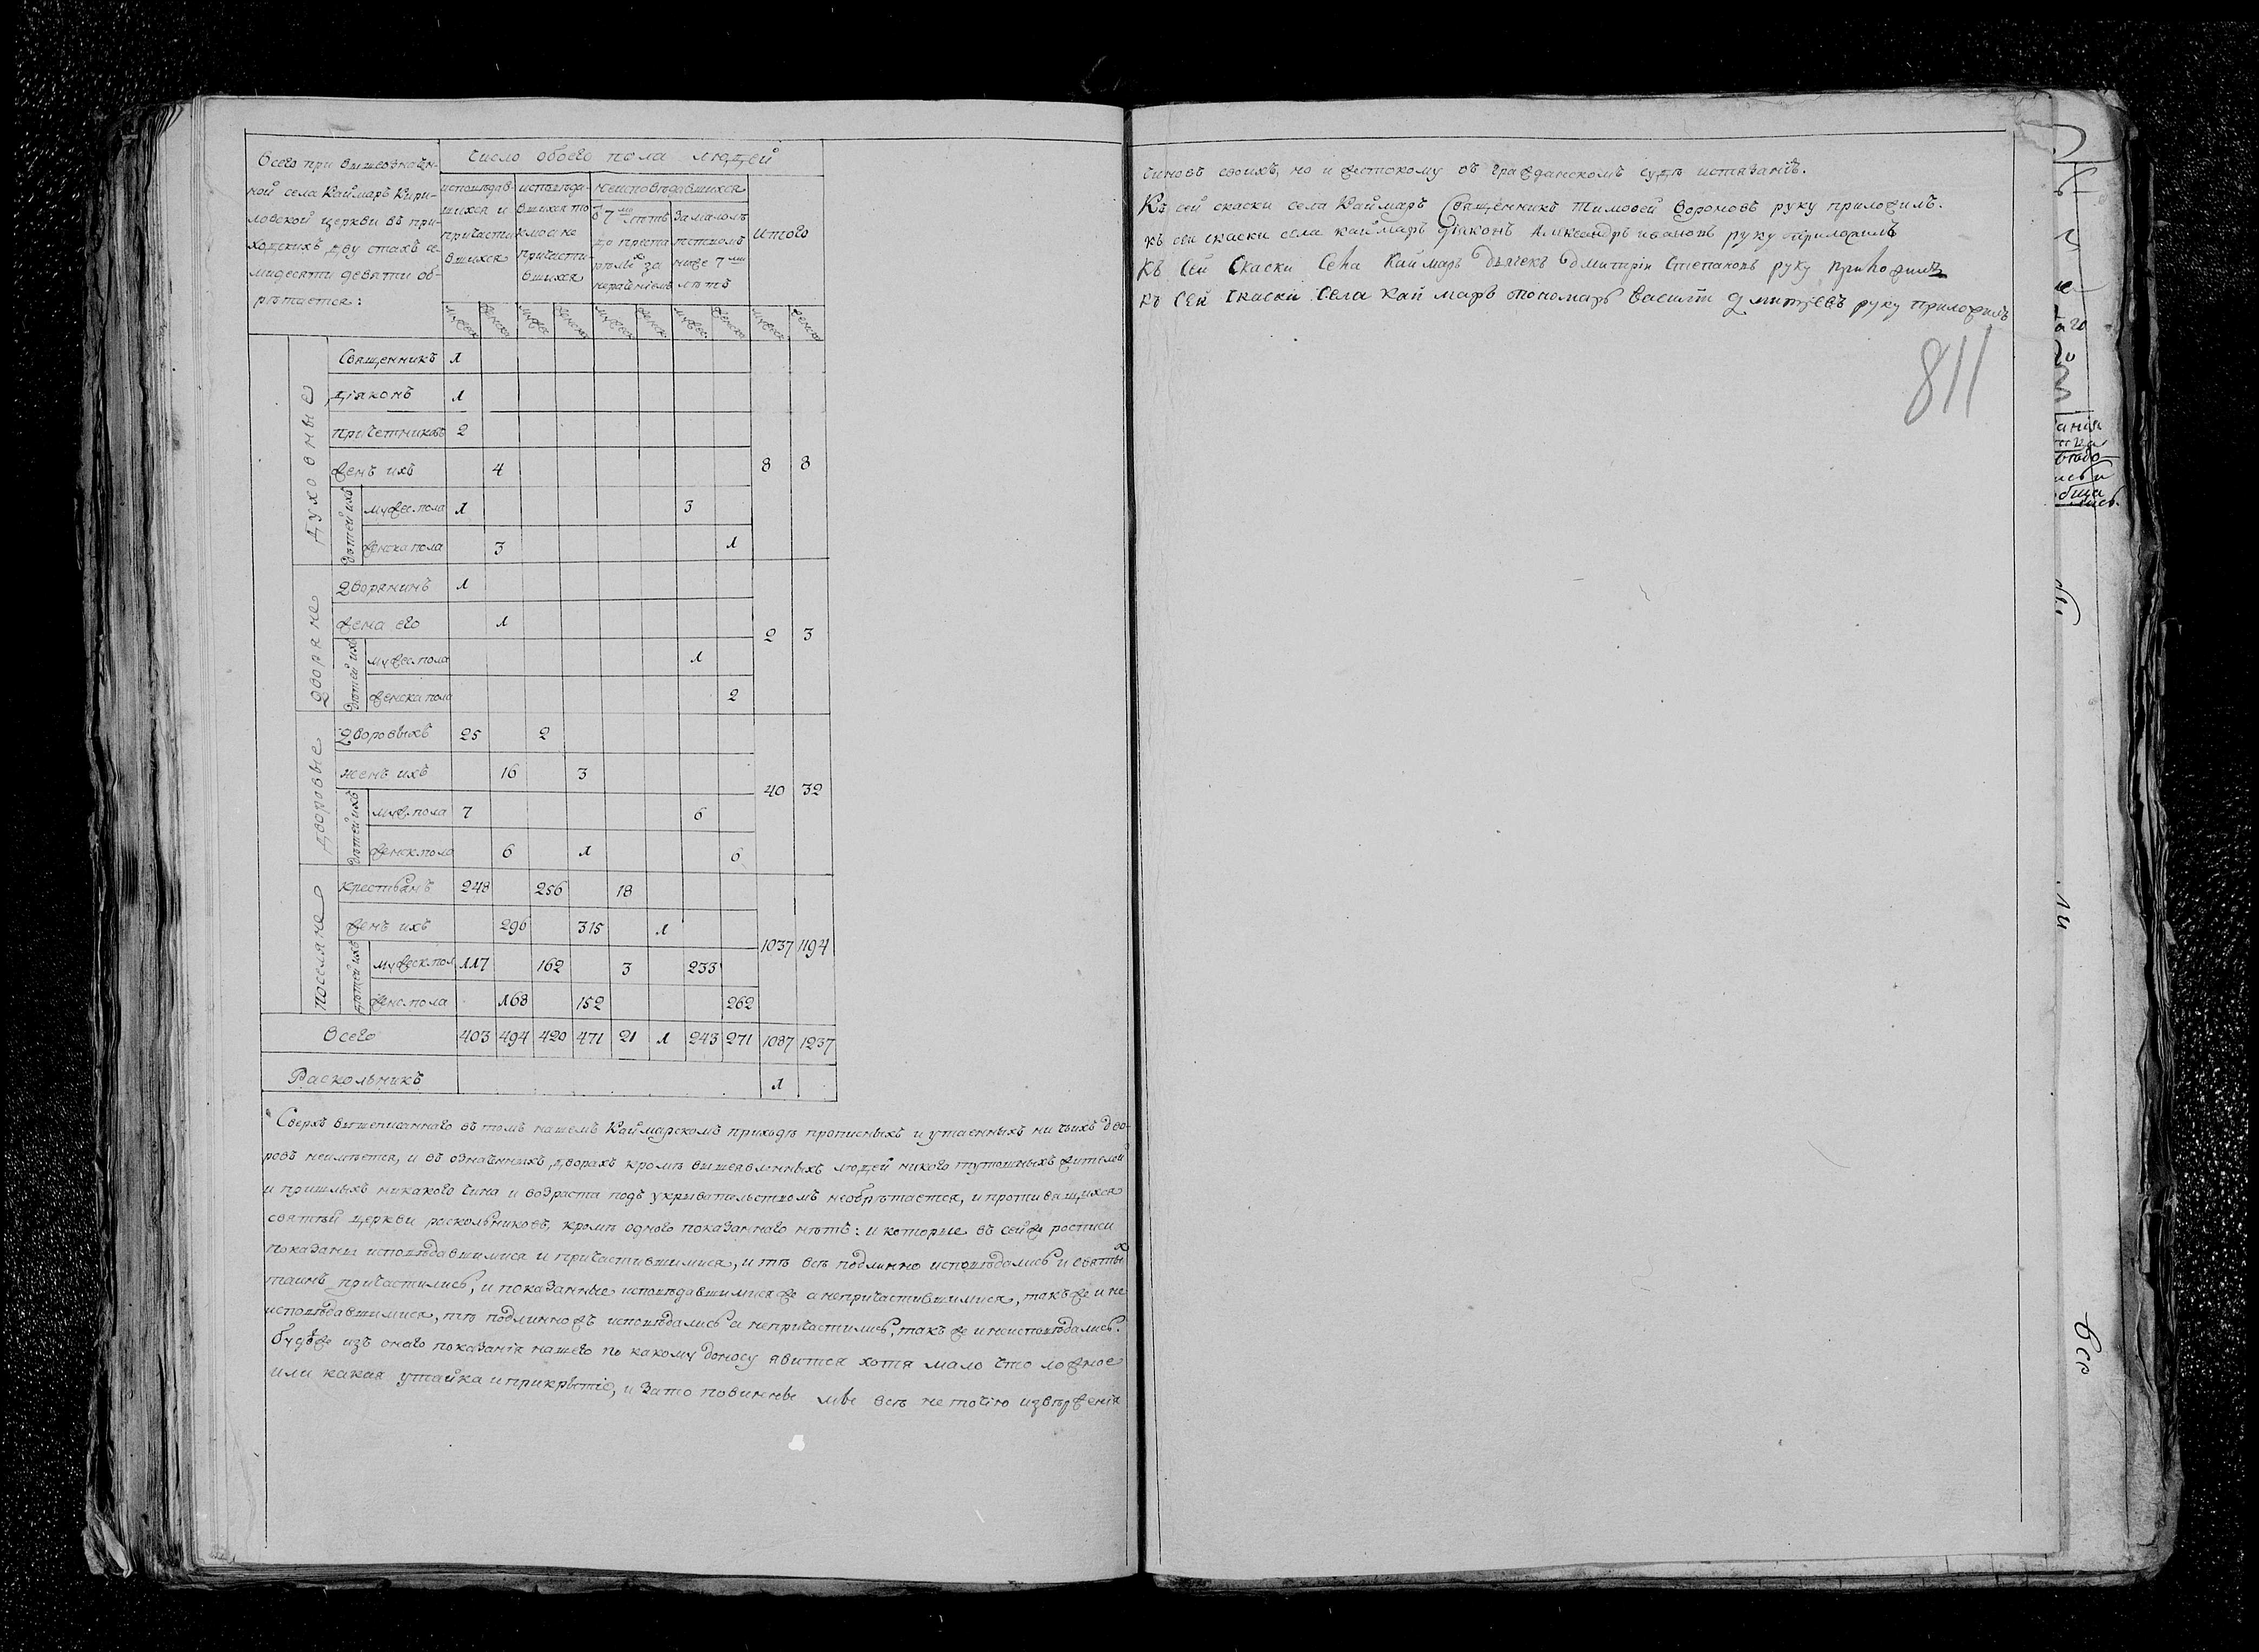 Всего при вышеозначен-
ной села Каймаръ Кири-
ловской церкви въ при-
ходскихъ дву стахъ се-
мидесяти девяти об-
рѣтается:
Число обоего пола людей
исповѣдав-
шихся и
причасти
вшихся
исповѣда-
вшихся то
кмо а не
причасти-
вшихся
неисповѣдавшихся
Итого
ѿ 7ми лѣтъ
до преста
рѣлых за
нерачениемъ
За малолѣ
тствомъ
ниже 7ми
лѣтъ
мужеск женска мужес женска мужеск женск мужес женска мужеск женска
Духовные
Священникъ 1
Діаконъ 1
Причетниковъ 2
женъ ихъ 4 8 8
дѣтей ихъ
мужес. пола 1 3
женска пола 3 1
Дворяне
Дворянинъ 1
жена его 1 2 3
дѣтей ихъ
мужес. пола 1
женска пола 2
Дворовые
Дворовыхъ 25 2
женъ ихъ 16 3 40 32
дѣтей ихъ
муж. пола 7 6
женск. пола 6 1 6
Поселяне
крестьянъ 248 256 18
женъ ихъ 296 315 1 1037 1194
дѣтей ихъ
мужеск. пол 117 162 3 233
женс. пола 168 152 262
Всего 403 494 420 471 21 1 243 271 1087 1237
Раскольникъ 1
Сверхъ вышеписанного въ томъ нашемъ Каймарскомъ приходѣ прописныхъ и утаенныхъ ни чьихъ дво-
ровъ неимѣется, и въ означенныхъ дворахъ кромѣ вышеявленныхъ людей никого тутошныхъ жителей
и пришлыхъ никакого чина и возраста подъ укрывательствомъ необрѣтается, и противящихся
святѣй церкви раскольниковъ, кромѣ одного показанного нѣтъ: и которые въ сей же росписи
показаны исповѣдавшимися и причастившимися, и тѣ всѣ подлинно исповѣдались и святых
таинъ причастились, и показанные исповѣдавшимися же а непричастившимися, такъ же и не
исповѣдавшимися, тѣ подлинно жъ исповѣдались а непричастились, такъ же и неисповѣдались.
будеже изъ оного показания нашего по какому доносу явится хотя мало что ложное
или какая утайка и прикрытіе, и за то повинны мы всѣ не точію извѣржения
чиновъ своихъ, но и жестокому въ гражданскомъ судѣ истязанію.
Къ сей скаски села Каймаръ Священникъ Тимофей Вороновъ руку приложилъ.
къ сеи скаски села каймаръ діаконъ Александръ ивановъ руку приложилъ
Къ Сей Скаски Села Каймаръ дьячекъ дмитрiи Степановъ руку приложилъ
къ Сей скаски Села Каймаръ пономарь Василiи дмитріевъ руку приложилъ
811